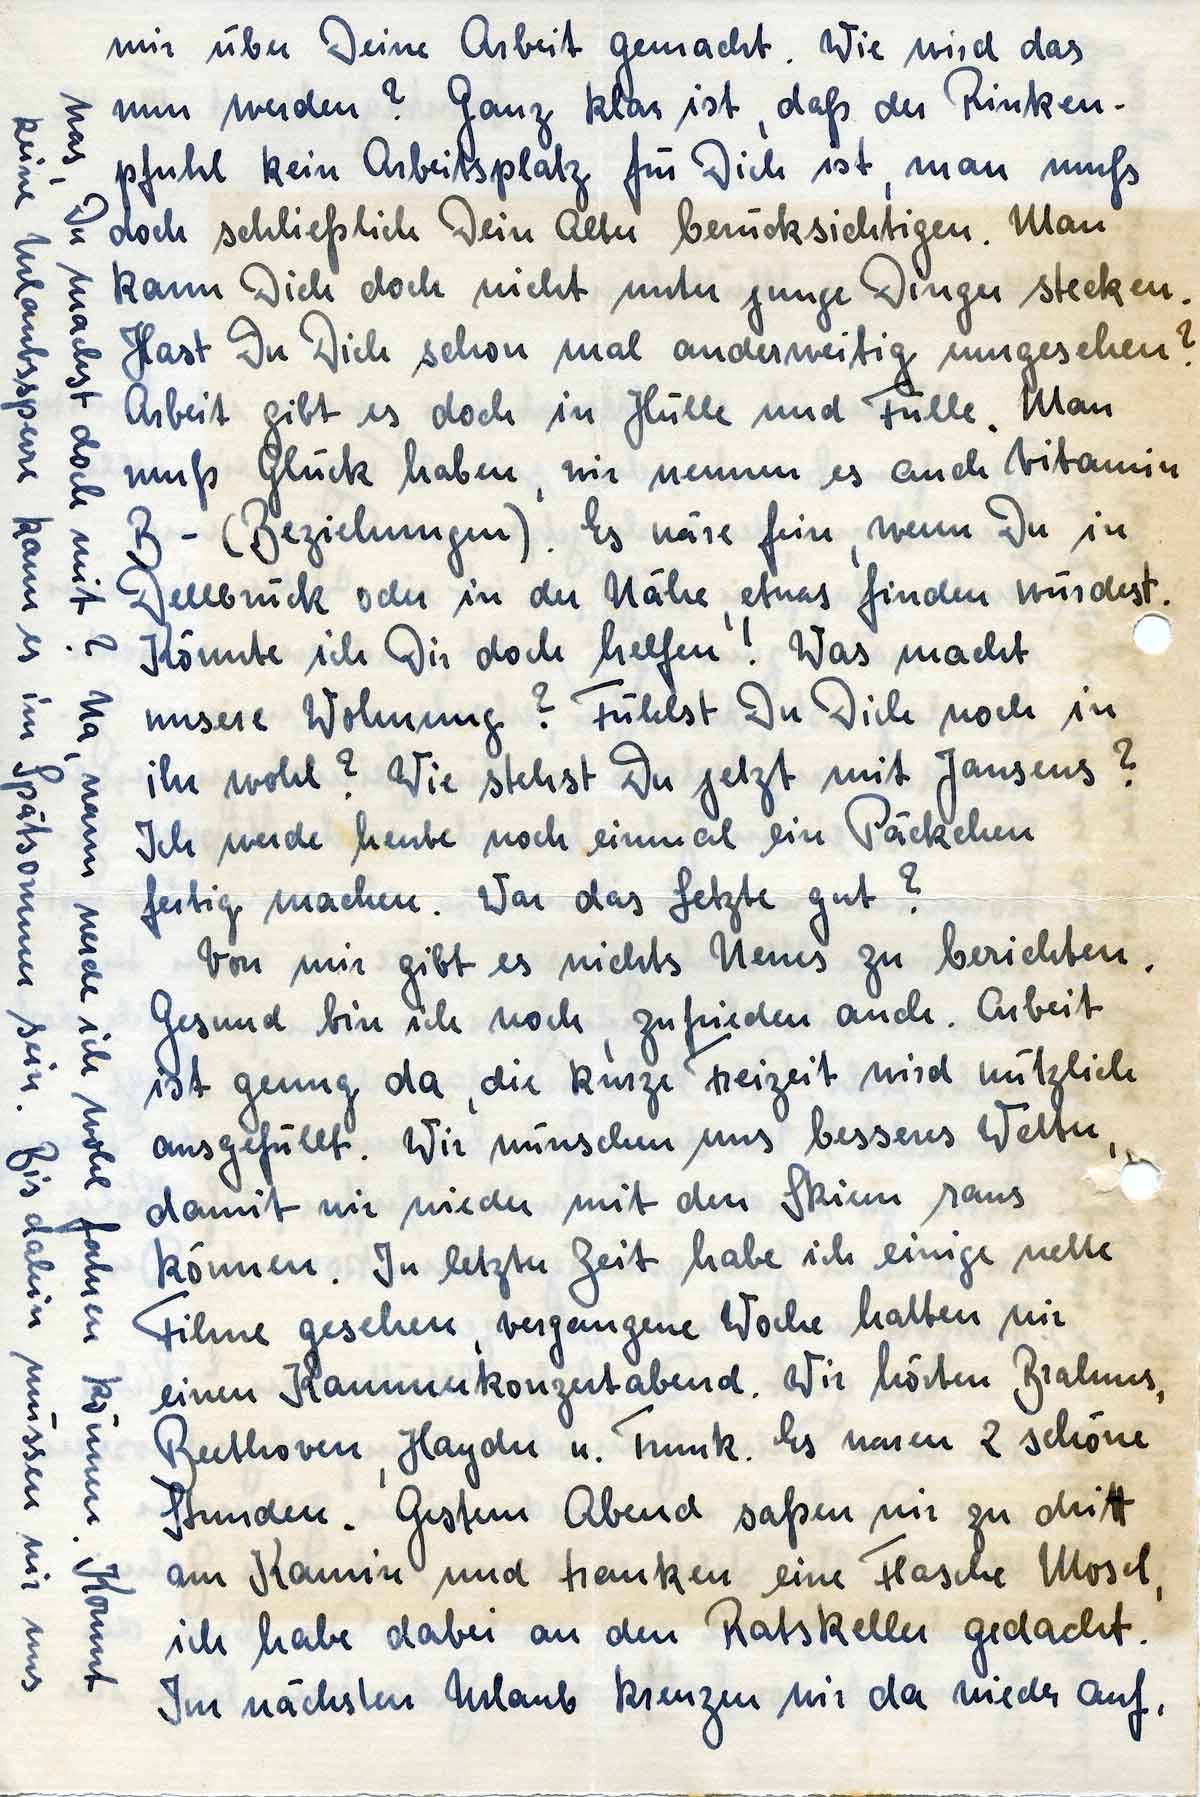 mir über Deine Arbeit gemacht. Wie wird das
nun werden? Ganz klar ist, daß der Rinken-
pfuhl kein Arbeitsplatz für Dich ist, man muß
doch schließlich Dein Alter berücksichtigen. Man
kann Dich doch nicht unter junge Dinger stecken.
Hast Du Dich schon mal anderweitig umgesehen?
Arbeit gibt es doch in Hülle und Fülle. Man
muß Glück haben, wir nennen es auch Vitamin
B - (Beziehungen). Es wäre fein, wenn Du in
Dellbrück oder in der Nähe, etwas finden würdest.
Könnte ich Dir doch helfen! Was macht
unsere Wohnung? Fühlst Du Dich noch in
ihr wohl? Wie stehst Du jetzt mit Jansens?
Ich werde heute noch einmal ein Päckchen
fertig machen. War das Letzte gut?
Von mir gibt es nichts Neues zu berichten.
Gesund bin ich noch, zufrieden auch. Arbeit
ist genug da, die kurze Freizeit wird nützlich
ausgefüllt. Wir wünschen uns besseres Wetter,
damit wir wieder mit den Skiern raus
können. In letzter Zeit habe ich einige nette
Filme gesehen, vergangene Woche hatten wir
einen Kammerkonzertabend. Wir hörten Brahms,
Beethoven, Haydn u. Trunk. Es waren 2 schöne
Stunden. Gestern Abend saßen wir zu dritt
am Kamin und tranken eine Flasche Mosel,
ich habe dabei an den Ratskeller gedacht.
Im nächsten Urlaub kreuzen wir da wieder auf,
was, Du machst doch mit? Na, wann werde ich wohl fahren können. Kommt
keine Urlaubssperre kann es im Spätsommer sein. Bis dahin müssen wir uns